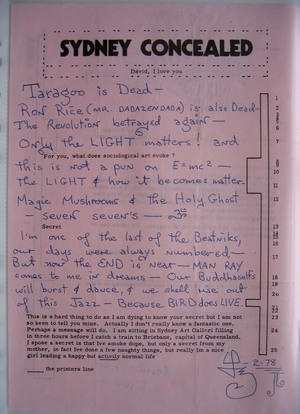 SYDNEY CONCEALED
David, I love you
Taragoo is Dead—
RON RICE (MR. DADAZENDADA) is also Dead—
The Revolution betrayed again—
Only the LIGHT matters! and
For you, what does sociological art evoke ?
this is not a pun on E=mc² —
the LIGHT & how it becomes matter—
Magic Mushrooms & the Holy Ghost
— seven seven's —
Secret
I'm one of the last of the Beatniks,
our days were always numbered—
But now the END is near — MAN RAY
comes to me in dreams — Our Buddhaselfs
will burst & dance, & we shall rise out
of this Jazz — Because BIRD does LIVE.
This is a hard thing to do as I am dying to know your secret but I am not
so keen to tell you mine. Actually I don't really know a fantastic one.
Perhaps a message will do. I am sitting in Sydney Art Galleri filling
in three hours before I catch a train to Briesbane, capital of Queensland.
I spose a secret is that Ive smoke dope, but only a secret from my
mother, in fact Ive done a few naughty things, but really Im a nice
girl leading a happy but activly normal life
____ the printers line
1
2
3
4
5
6
7
8
9
10
11
12
13
14
15
16
17
18
19
20
21
22
23
24
25
2-78